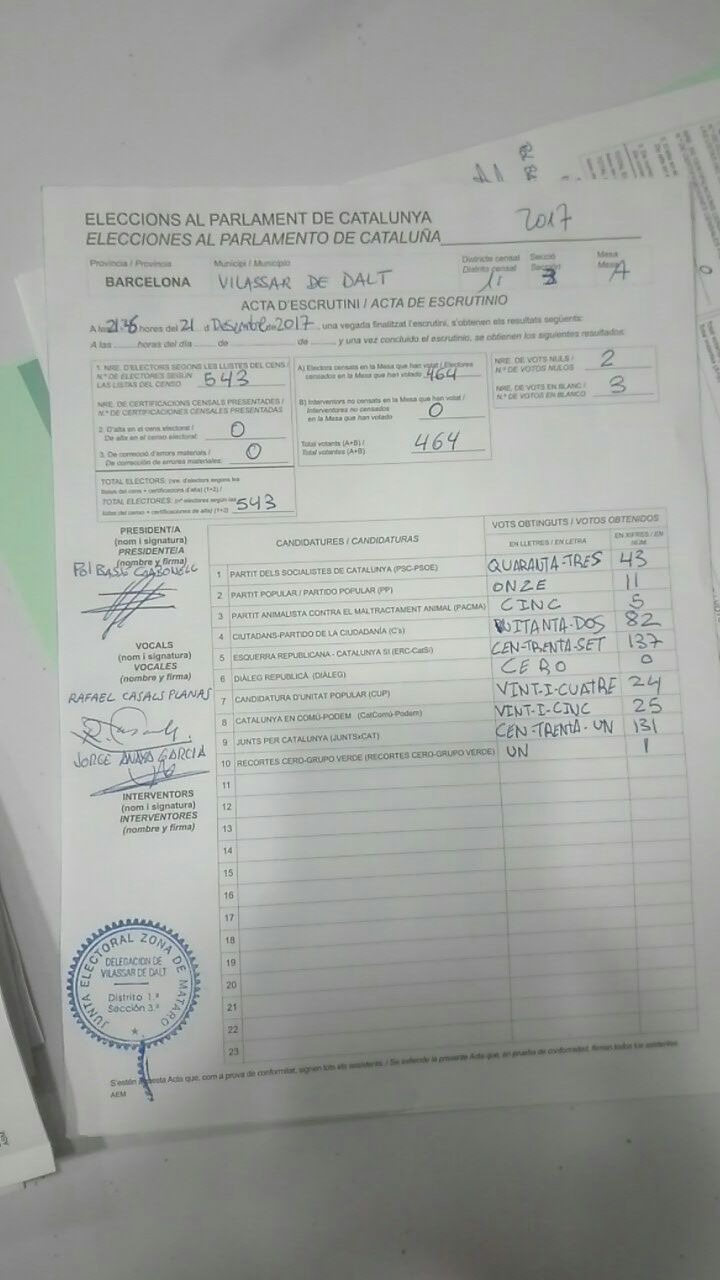 ELECCIONS AL PARLAMENT DE CATALUNYA
ELECCIONES AL PARLAMENTO DE CATALUÑA 2017
Província / Provincia
BARCELONA
Municipi / Municipio
VILASSAR DE DALT
Districte censal
Distrito censal
1
Secció
Sección
3
Mesa
Mesa
A
ACTA D'ESCRUTINI / ACTA DE ESCRUTINIO
A les hores del 21 d Desembre de 2017, una vegada finalitzat l'escrutini, s'obtenen els resultats següents:
A las ......... horas del día ....... de ............ de ....... y una vez concluido el escrutinio, se obtienen los siguientes resultados:
1. NRE. D'ELECTORS SEGONS LES LLISTES DEL CENS /
N.º DE ELECTORES SEGÚN
LAS LISTAS DEL CENSO 543
NRE. DE CERTIFICACIONS CENSALS PRESENTADES /
N.º DE CERTIFICACIONES CENSALES PRESENTADAS
2. D'alta en el cens electoral /
De alta en el censo electoral: 0
3. De correcció d'errors materials /
De corrección de errores materiales: 0
TOTAL ELECTORS: (nre. d'electors segons les
llistes del cens + certificacions d'alta) (1+2) /
TOTAL ELECTORES: (nº electores según las
listas del censo + certificaciones de alta) (1+2) 543
A) Electors censats en la Mesa que han votat / Electores
censados en la Mesa que han votado 464
B) Interventors no censats en la Mesa que han votat /
Interventores no censados
en la Mesa que han votado 0
Total votants (A+B) /
Total votantes (A+B) 464
NRE. DE VOTS NULS /
N.º DE VOTOS NULOS 2
NRE. DE VOTS EN BLANC /
N.º DE VOTOS EN BLANCO 3
PRESIDENT/A
(nom i signatura)
PRESIDENTE/A
(nombre y firma)
VOCALS
(nom i signatura)
VOCALES
(nombre y firma)
RAFAEL CASALS PLANAS
JORGE ANAYA GARCIA
INTERVENTORS
(nom i signatura)
INTERVENTORES
(nombre y firma)
CANDIDATURES / CANDIDATURAS
VOTS OBTINGUTS / VOTOS OBTENIDOS
EN LLETRES / EN LETRA
EN XIFRES / EN NÚM.
1 PARTIT DELS SOCIALISTES DE CATALUNYA (PSC-PSOE) QUARANTA-TRES 43
2 PARTIT POPULAR / PARTIDO POPULAR (PP) ONZE 11
3 PARTIT ANIMALISTA CONTRA EL MALTRACTAMENT ANIMAL (PACMA) CINC 5
4 CIUTADANS-PARTIDO DE LA CIUDADANÍA (C's) VUITANTA-DOS 82
5 ESQUERRA REPUBLICANA - CATALUNYA SÍ (ERC-CatSí) CEN-TRENTA-SET 137
6 DIÀLEG REPUBLICÀ (DIÀLEG) CERO 0
7 CANDIDATURA D'UNITAT POPULAR (CUP) VINT-I-CUATRE 24
8 CATALUNYA EN COMÚ-PODEM (CatComú-Podem) VINT-I-CINC 25
9 JUNTS PER CATALUNYA (JUNTSxCAT) CEN-TRENTA-UN 131
10 RECORTES CERO-GRUPO VERDE (RECORTES CERO-GRUPO VERDE) UN 1
11
12
13
14
15
16
17
18
19
20
21
22
23
JUNTA ELECTORAL ZONA DE MATARO
DELEGACION DE
VILASSAR DE DALT
Distrito 1.ª
Sección 3.ª
S'estén aquesta Acta que, com a prova de conformitat, signen tots els assistents. / Se extiende la presente Acta que, en prueba de conformidad, firman todos los asistentes
AEM